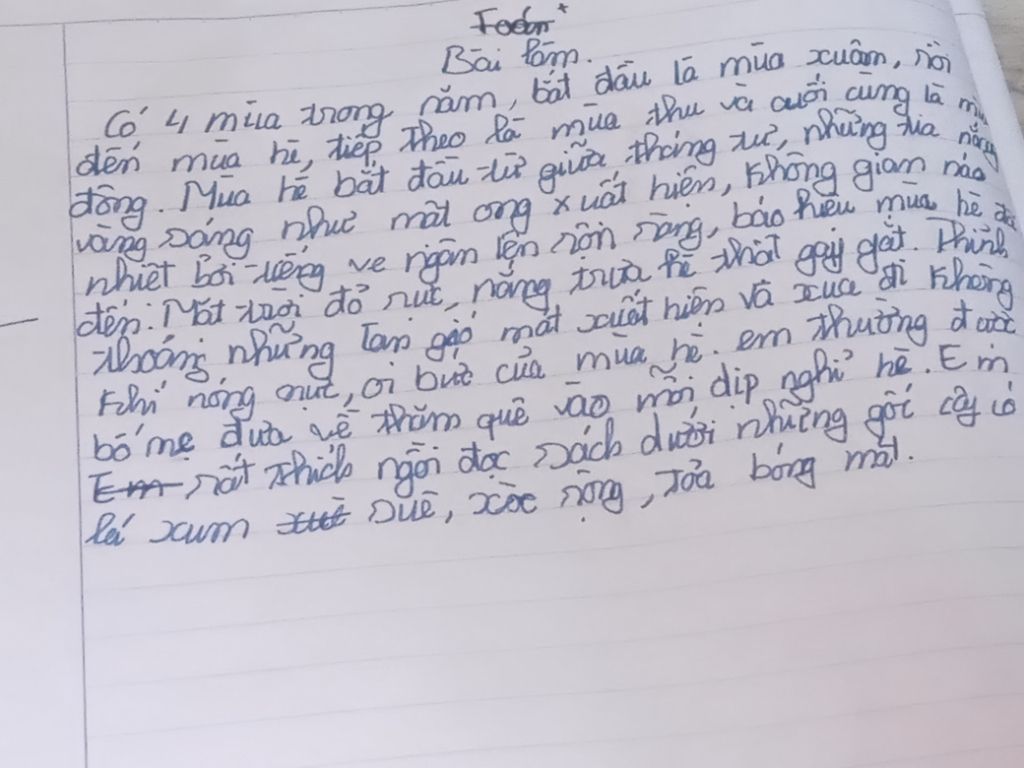 Bài làm.
Có 4 mùa trong năm, bắt đầu là mùa xuân, rồi
đến mùa hè, tiếp theo là mùa thu và cuối cùng là
đông. Mùa hè bắt đầu từ giữa tháng tư, những tia nắng
vàng sáng như mật ong xuất hiện, không gian náo
nhiệt bởi tiếng ve ngân lên rộn ràng, báo hiệu mùa hè đã
đến. Mặt trời đỏ rực, nắng trưa hè thật gay gắt. Thỉnh
thoảng những làn gió mát xuất hiện và xua đi không
khí nóng nực, oi bức của mùa hè. em thường được
bố mẹ đưa về thăm quê vào mỗi dịp nghỉ hè. Em
rất thích ngồi đọc sách dưới những gốc cây có
lá xum xuê, xòe rộng, tỏa bóng mát.